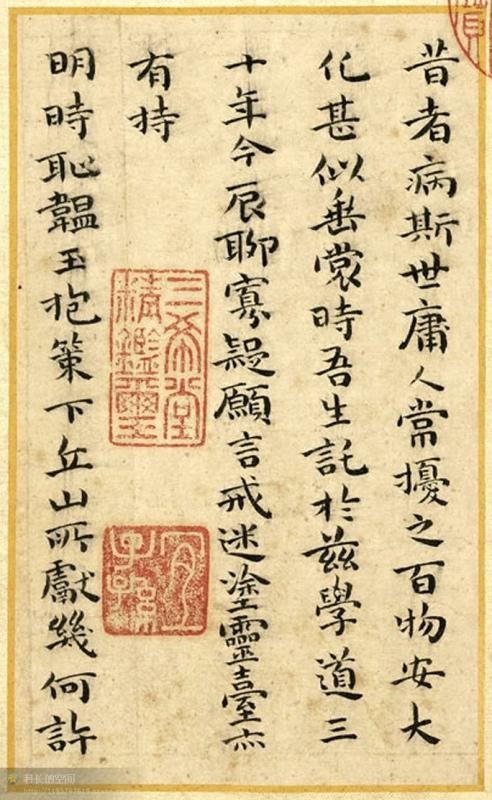 昔者病斯世庸人常擾之百物安大
化甚似垂裳時吾生託於茲學道三
十年今辰聊寡疑願言戒迷塗靈臺亦
有持
明時恥韞玉抱策下丘山所獻幾何許
三希堂精鑑璽
宜子孫
科长的空间